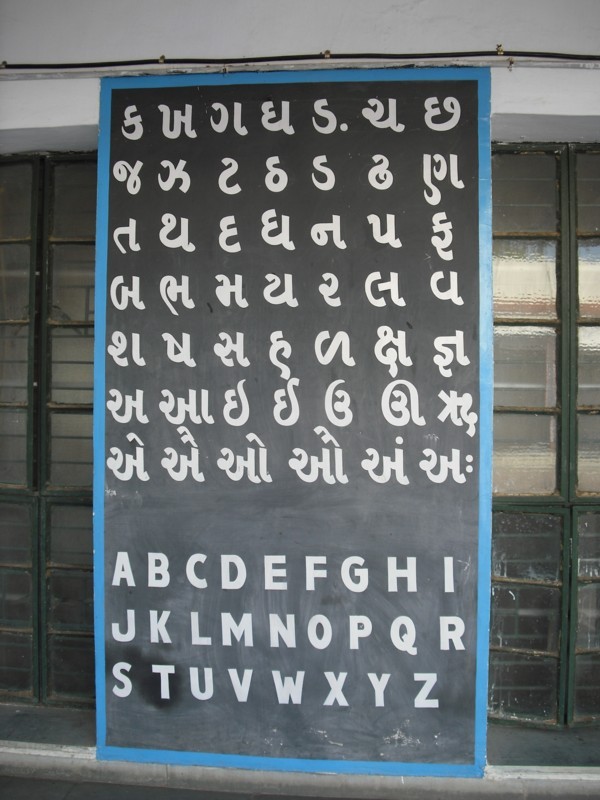 ક ખ ગ ઘ ડ. ચ છ
જ ઝ ટ ઠ ડ ઢ ણ
ત થ દ ધ ન પ ફ
બ ભ મ ય ર લ વ
શ ષ સ હ ળ ક્ષ જ્ઞ
અ આ ઇ ઈ ઉ ઊ ઋ
એ ઐ ઓ ઔ અં અઃ
A B C D E F G H I
J K L M N O P Q R
S T U V W X Y Z